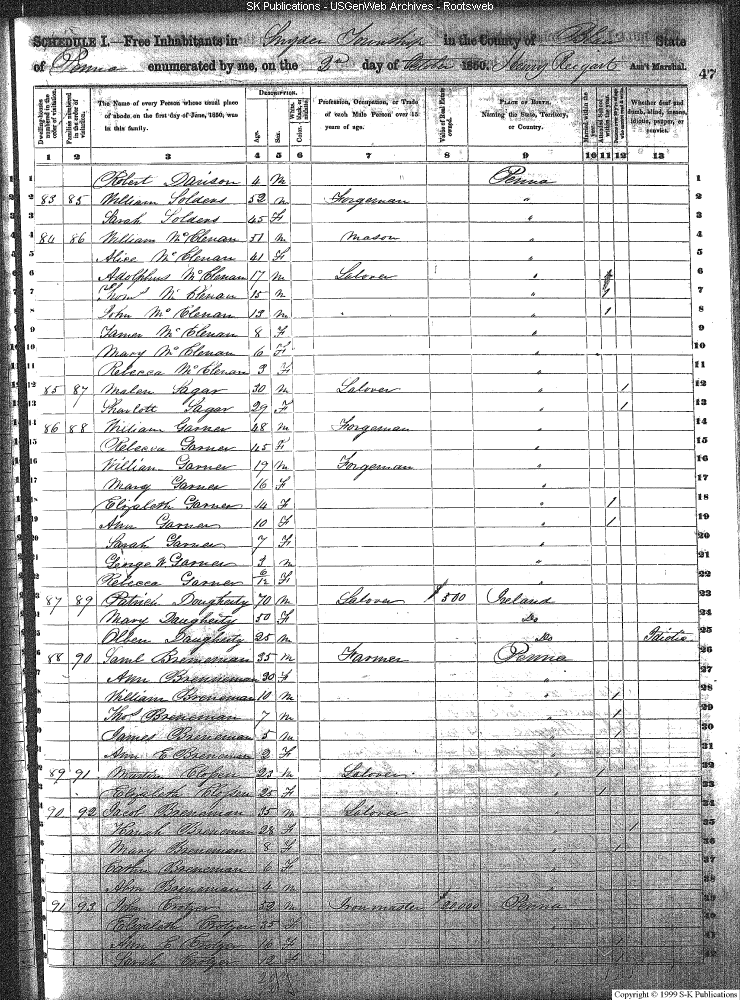 SK Publications - USGenWeb Archives - Rootsweb
SCHEDULE I.—Free Inhabitants in Snyder Township in the County of Blair State
of Penna enumerated by me, on the 3d day of October 1850. Ass't Marshal.
47
Dwelling-houses numbered in the order of visitation. Families numbered in the order of visitation. The Name of every Person whose usual place of abode on the first day of June, 1850, was in this family. Description. Age. Sex. Color. Profession, Occupation, or Trade of each Male Person over 15 years of age. Value of Real Estate owned. Place of Birth, Naming the State, Territory, or Country. Married within the year. Attended School within the year. Whether deaf and dumb, blind, insane, idiotic, pauper, or convict.
1 2 3 4 5 6 7 8 9 10 11 12 13
1 Robert Davison 4 M Penna 1
2 83 85 William Solders 52 M Forgeman " 2
3 Sarah Solders 45 F " 3
4 84 86 William McClenan 51 M Mason " 4
5 Alice McClenan 41 F " 5
6 Adolphus McClenan 17 M Labover " 6
7 Thoms McClenan 15 M " 1 7
8 John McClenan 13 M " 1 8
9 Tamer McClenan 8 F " 9
10 Mary McClenan 6 F " 10
11 Rebecca McClenan 3 F " 11
12 85 87 Malen Sagar 30 M Labover " 1 12
13 Sharlott Sagar 29 F " 1 13
14 86 88 William Garner 48 M Forgeman " 14
15 Rebecca Garner 45 F " 15
16 William Garner 19 M Forgeman " 16
17 Mary Garner 16 F " 17
18 Elizabeth Garner 14 F " 1 18
19 Ann Garner 10 F " 1 19
20 Sarah Garner 7 F " 20
21 George W Garner 3 M " 21
22 Rebecca Garner 6/12 F " 22
23 87 89 Patrick Dougherty 70 M Labover $500 Ireland 23
24 Mary Daugherty 50 F Do 24
25 Daugherty 25 M Do Idiotic 25
26 88 90 Saml Breneman 35 M Farmer Penna 26
27 Ann Brenneman 30 F " 27
28 William Breneman 10 M " 1 28
29 Thos Breneman 7 M " 1 29
30 James Breneman 5 M " 1 30
31 Ann E Breneman 2 F " 31
32 89 91 Martin 23 M Labover " 1 32
Elizabeth 25 F " 1
34 90 92 Jacob Breneman 35 M Labover " 34
35 Hanah Breneman 28 F " 1 35
36 Mary Breneman 8 F " 1 36
37 Breneman 6 F " 37
38 Abm Breneman 4 M " 38
39 91 93 John 52 M Iron master Penna 39
Elizabeth 35 F "
Ann E 16 F " 1
42 Sarah 12 F " 1 42
Copyright © 1999 S-K Publications